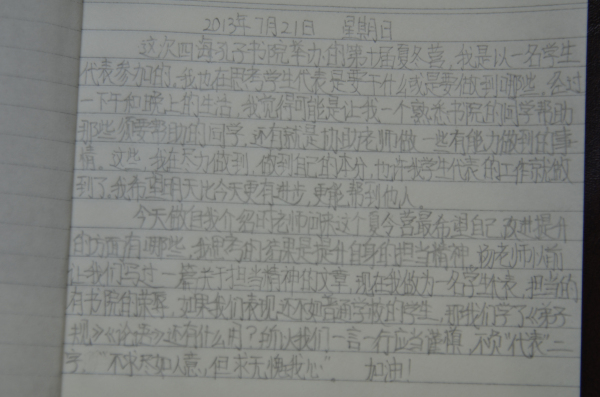 2013年7月21日 星期日
这次四海孔子书院举办的第七届夏令营,我是以一名学生
代表参加的,我也在思考学生代表是要干什么或是要做到哪些,经过
一下午和晚上的生活,我觉得可能是让我一个熟悉书院的同学帮助
那些须要帮助的同学,还有就是协助老师做一些有能力做到的事
情。这些我在尽力做到,做到自己的本分,也许我学生代表的工作就做
到了,我希望明天比今天更有进步,更能帮到他人。
今天做自我介绍还老师问来这个夏令营最希望自己改进提升
的方面有哪些,我思考的结果是提升自身的担当精神,杨老师以前
让我们写过一篇关于担当精神的文章,现在我做为一名学生代表,担当的
有书院的荣辱,如果我们表现还不如普通学校的学生,那我们学了《弟子
规》《论语》还有什么用?所以我们一言一行应当谨慎,不负“代表”二
字。“不求尽如人意,但求无愧我心”。 加油!